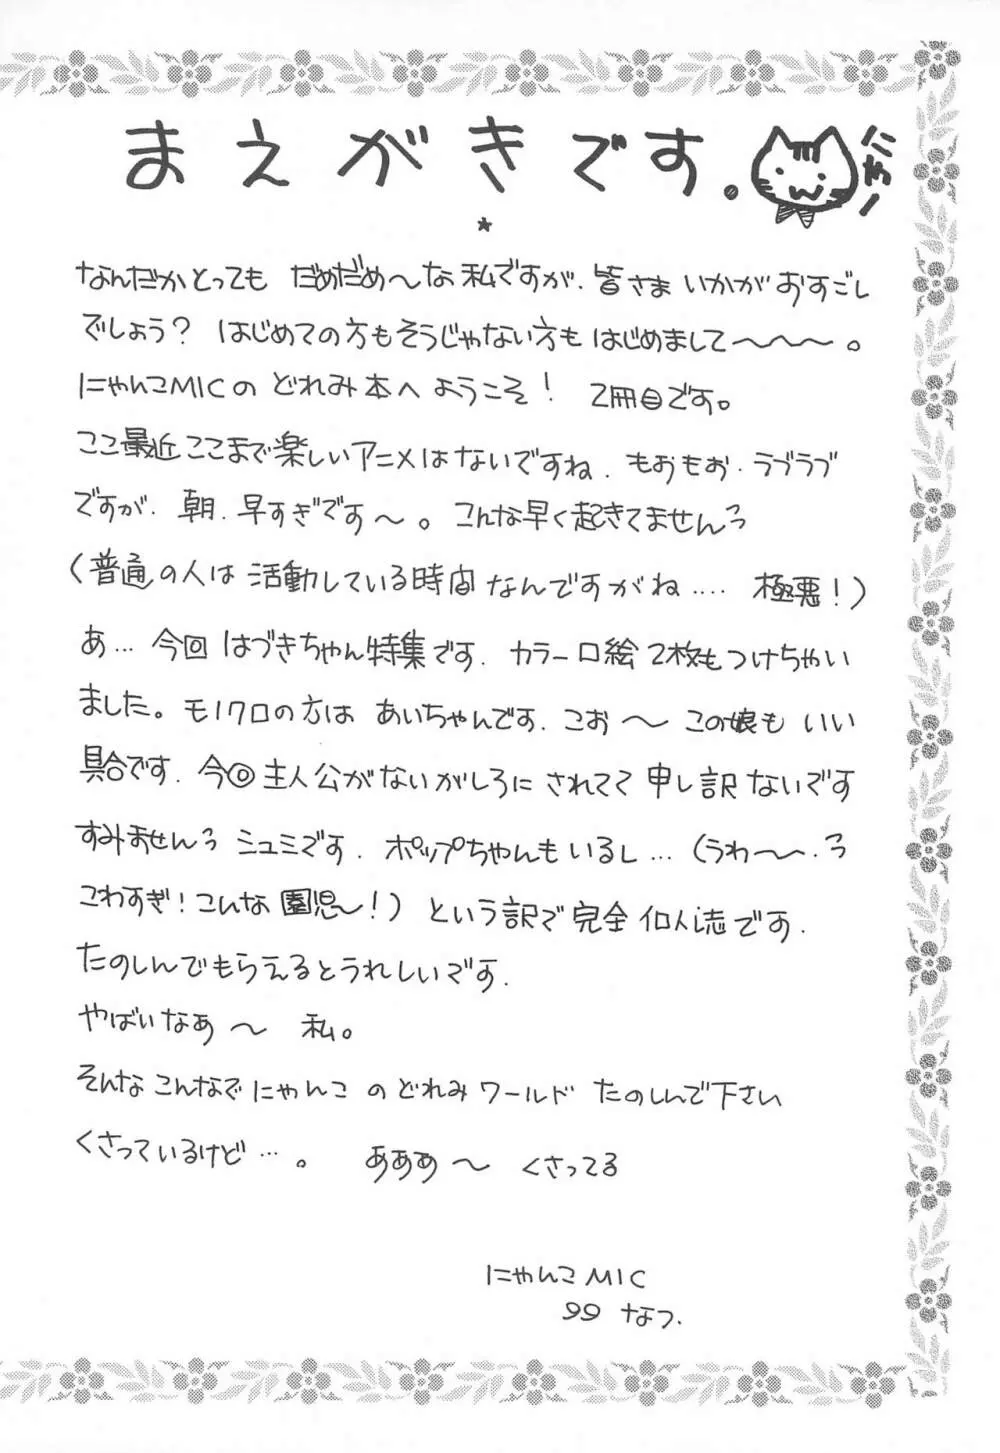 まえがきです。
にゃー
なんだかとっても だめだめ〜な私ですが、皆さま いかがおすごし
でしょう？ はじめての方もそうじゃない方も はじめまして〜〜〜。
にゃんこMICの どれみ本へ ようこそ！ 2冊目です。
ここ最近ここまで楽しいアニメはないですね、もおもお、ラブラブ
ですが、朝、早すぎです〜。こんな早く起きてませんっ
(普通の人は 活動している時間なんですがね‥‥ 極悪！)
あ… 今回 はづきちゃん特集です、カラー口絵2枚もつけちゃい
ました。モノクロの方は あいちゃんです、こお〜 この娘も いい
具合です、今回主人公がないがしろに されてて 申し訳ないです
すみませんっ シュミです、ポップちゃんもいるし…(うわ〜、っ
こわすぎ！こんな 園児〜！) という訳で 完全 個人誌です、
たのしんでもらえるとうれしいです、
やばいなぁ〜 私。
そんなこんなで にゃんこ のどれみワールド たのしんで下さい
くさっているけど…。 あああ〜 くさってる
にゃんこMIC
99 なつ、